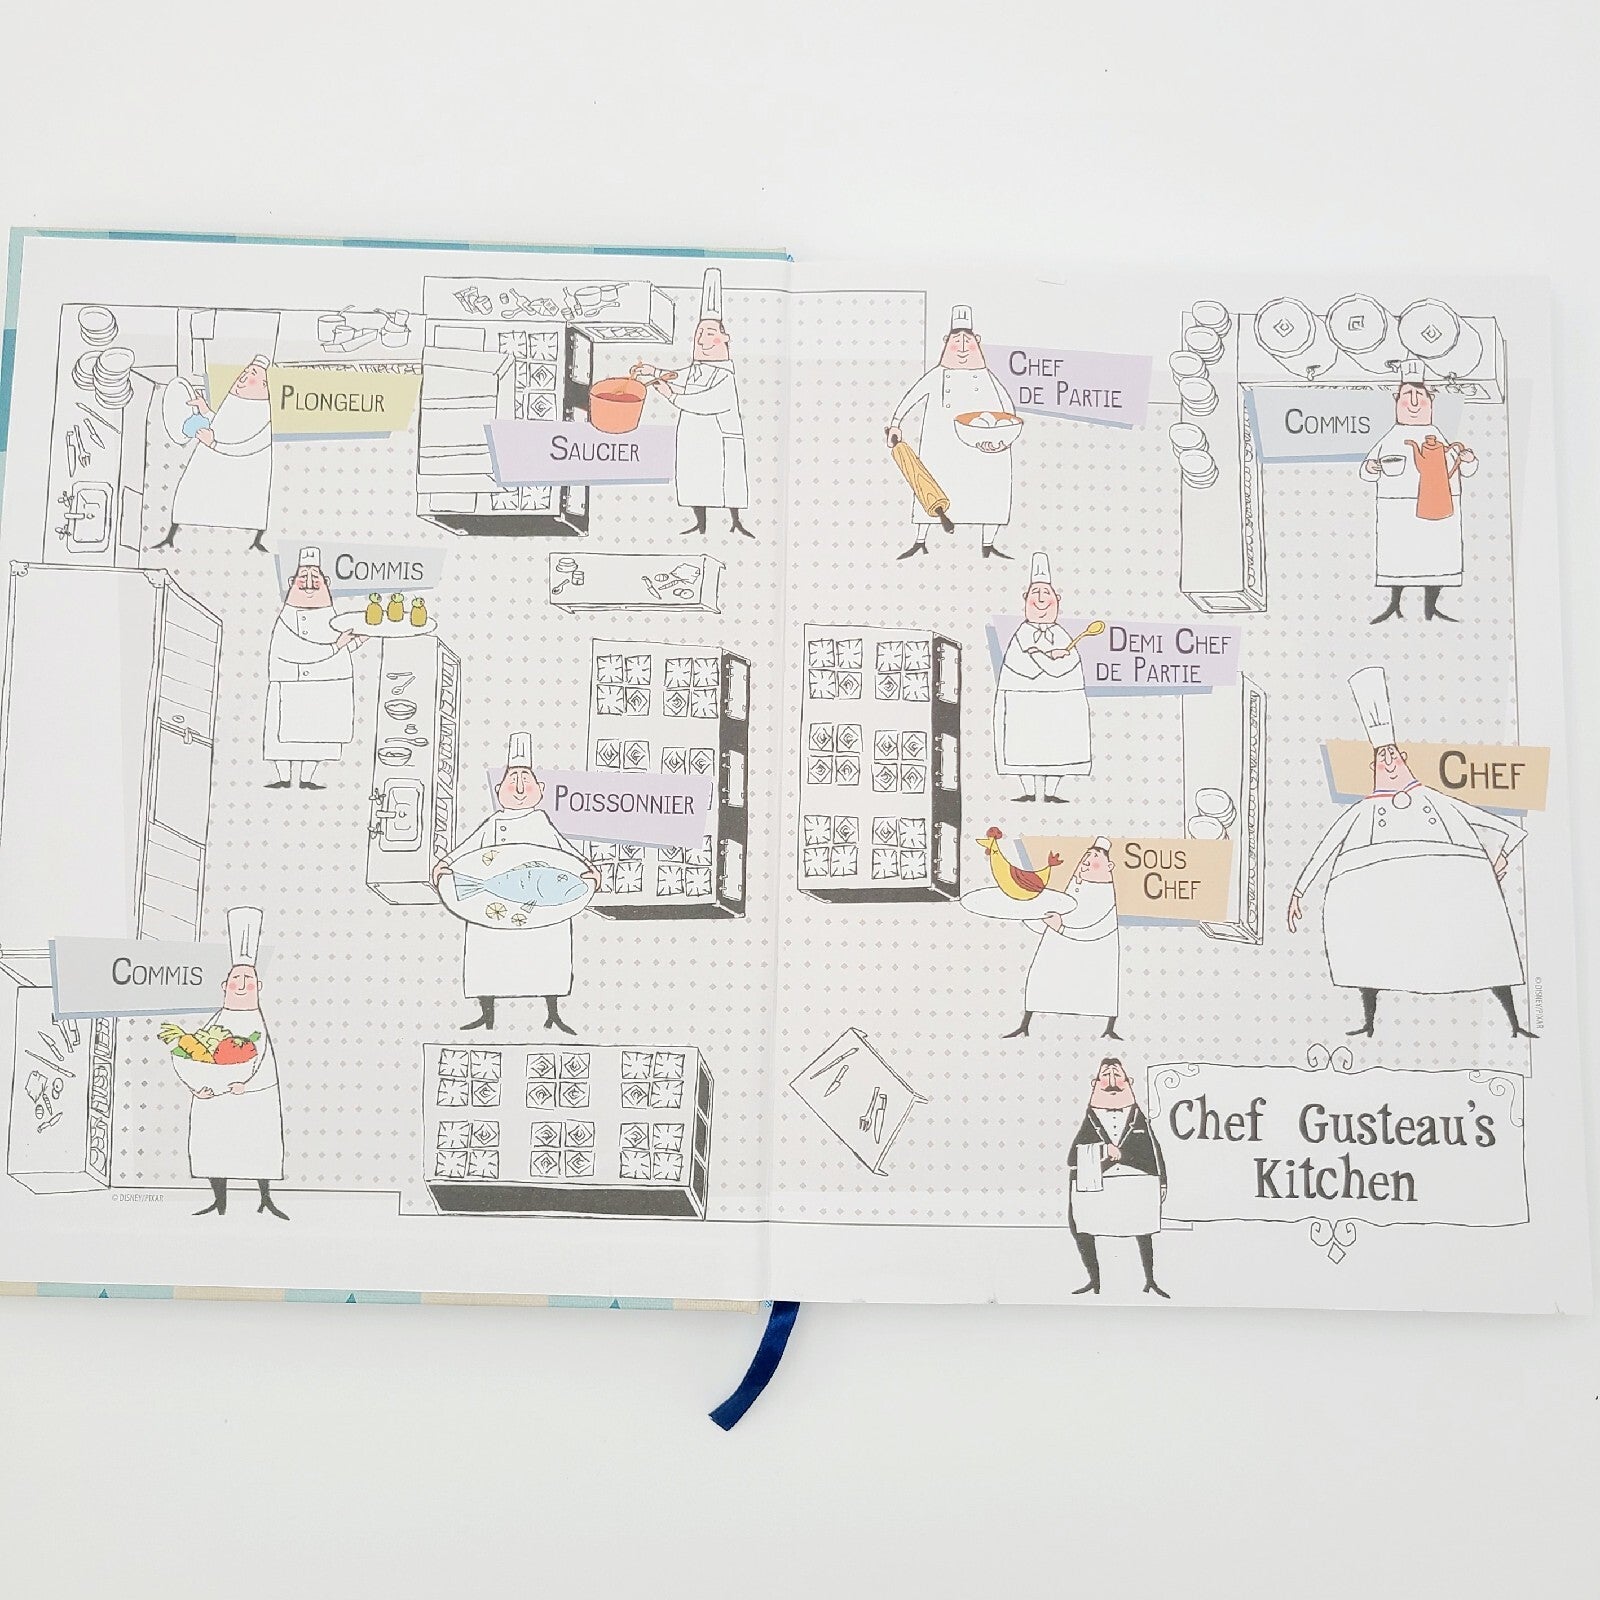 Plongeur
Saucier
Commis
Poissonnier
Commis
© DISNEY/PIXAR
Chef
de Partie
Commis
Demi Chef
de Partie
Chef
Sous
Chef
© DISNEY/PIXAR
Chef Gusteau's
Kitchen